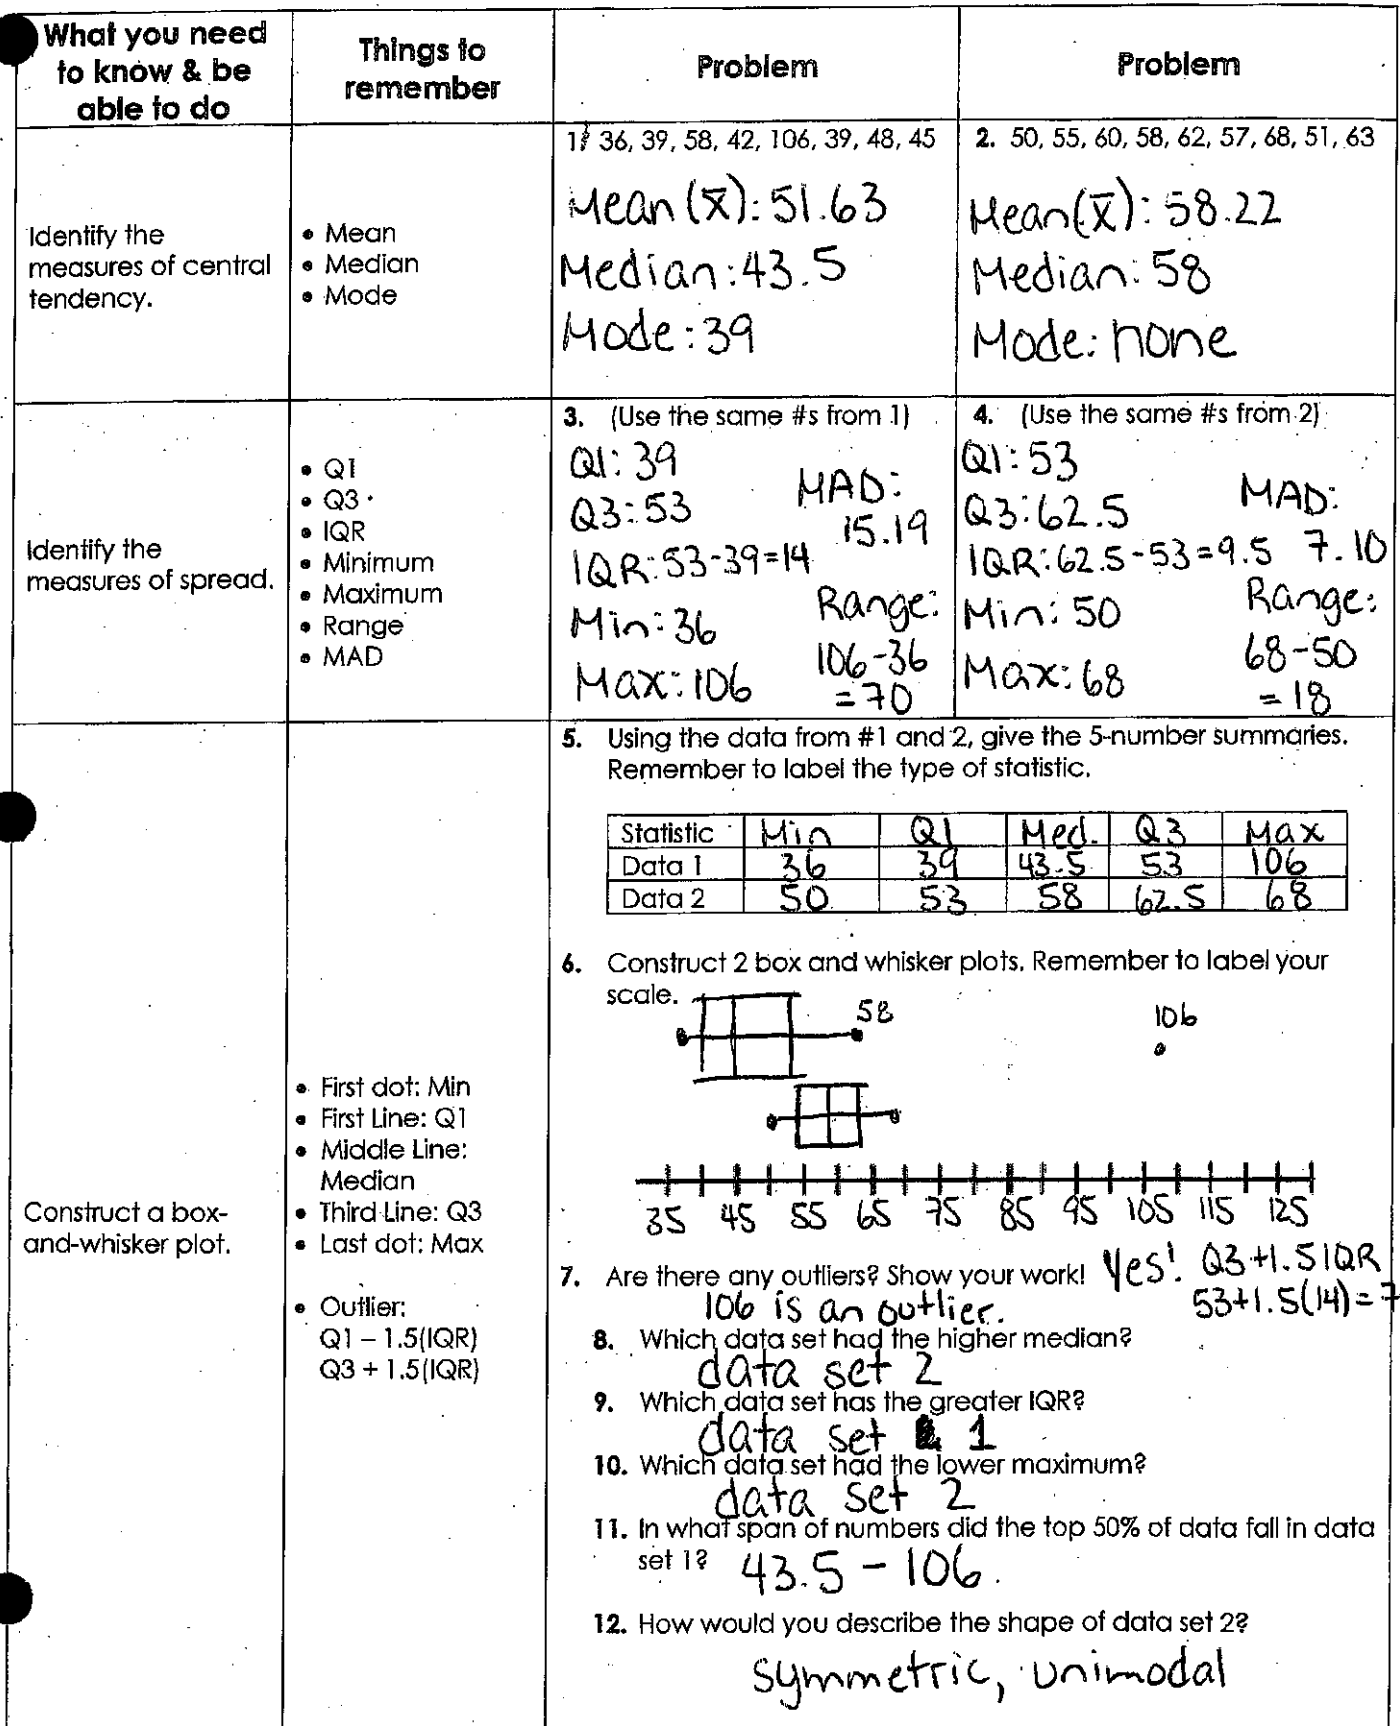 What you need
to know & be
able to do
Things to
remember
Problem
Problem
Identify the
measures of central
tendency.
• Mean
• Median
• Mode
1. 36, 39, 58, 42, 106, 39, 48, 45
Mean (x̄): 51.63
Median: 43.5
Mode: 39
2. 50, 55, 60, 58, 62, 57, 68, 51, 63
Mean (x̄): 58.22
Median: 58
Mode: none
Identify the
measures of spread.
• Q1
• Q3
• IQR
• Minimum
• Maximum
• Range
• MAD
3. (Use the same #s from 1)
Q1: 39
Q3: 53
IQR: 53-39=14
Min: 36
Max: 106
MAD:
15.19
Range:
106-36
=70
4. (Use the same #s from 2)
Q1: 53
Q3: 62.5
IQR: 62.5-53=9.5
Min: 50
Max: 68
MAD:
7.10
Range:
68-50
=18
Construct a box-
and-whisker plot.
• First dot: Min
• First Line: Q1
• Middle Line:
Median
• Third Line: Q3
• Last dot: Max
• Outlier:
Q1 – 1.5(IQR)
Q3 + 1.5(IQR)
5. Using the data from #1 and 2, give the 5-number summaries.
Remember to label the type of statistic.
Statistic Min Q1 Med. Q3 Max
Data 1 36 39 43.5 53 106
Data 2 50 53 58 62.5 68
6. Construct 2 box and whisker plots. Remember to label your
scale.
58
106
35 45 55 65 75 85 95 105 115 125
7. Are there any outliers? Show your work! Yes! Q3+1.5IQR
106 is an outlier. 53+1.5(14)=7
8. Which data set had the higher median?
data set 2
9. Which data set has the greater IQR?
data set 1
10. Which data set had the lower maximum?
data set 2
11. In what span of numbers did the top 50% of data fall in data
set 1? 43.5 – 106.
12. How would you describe the shape of data set 2?
symmetric, unimodal